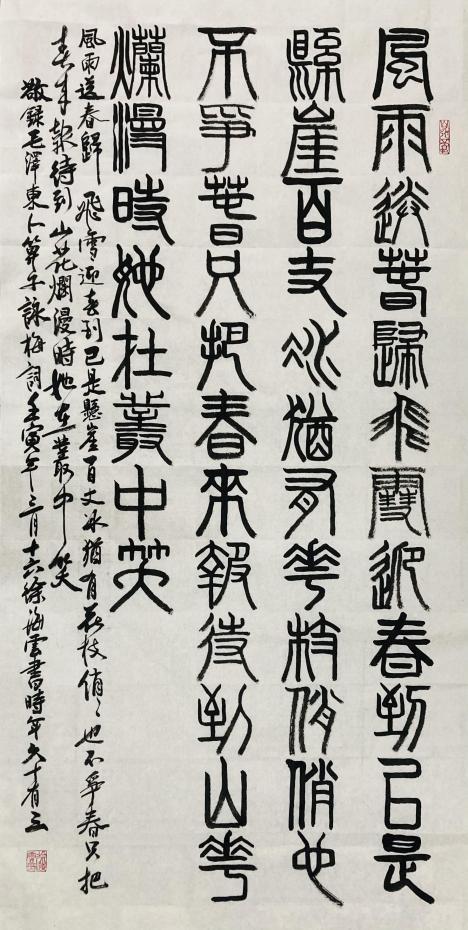 風雨送春歸飛雪迎春到已是
縣崖百丈冰猶有花枝俏俏也
不爭春只把春來報待到山花
爛漫時她在叢中笑
風雨送春歸飛雪迎春到已是懸崖百丈冰猶有花枝俏々也不爭春只把
春來報待到山花爛漫時她在叢中笑
敬錄毛澤東卜算子詠梅詞壬寅年三月十六徐海雲書時年六十有三